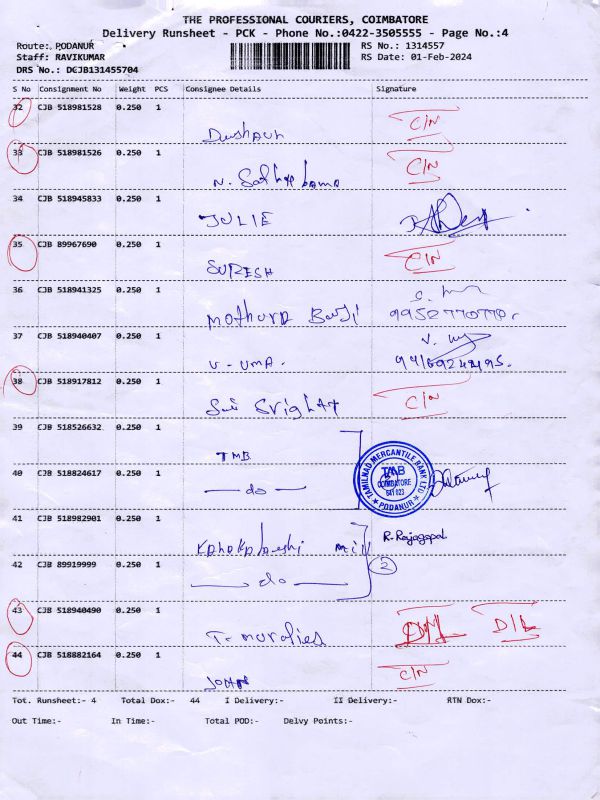 THE PROFESSIONAL COURIERS, COIMBATORE
Delivery Runsheet - PCK - Phone No.:0422-3505555 - Page No.:4
Route: PODANUR RS No.: 1314557
Staff: RAVIKUMAR RS Date: 01-Feb-2024
DRS No.: DCJB131455704
S No Consignment No Weight PCS Consignee Details Signature
32 CJB 518981528 0.250 1 C/N
33 CJB 518981526 0.250 1 N. Sathyabama C/N
34 CJB 518945833 0.250 1 JULIE
35 CJB 89967690 0.250 1 SURESH C/N
36 CJB 518941325 0.250 1
37 CJB 518940407 0.250 1 V. UMA.
38 CJB 518917812 0.250 1 C/N
39 CJB 518526632 0.250 1 TMB
40 CJB 518824617 0.250 1 — do —
TAMILNAD MERCANTILE BANK LTD
TMB
COIMBATORE
641 023
PODANUR
41 CJB 518982901 0.250 1 R. Rajagopal
42 CJB 89919999 0.250 1 — do — 2
43 CJB 518940490 0.250 1 D/L
44 CJB 518882164 0.250 1 JOHN C/N
Tot. Runsheet:- 4 Total Dox:- 44 I Delivery:- II Delivery:- RTN Dox:-
Out Time:- In Time:- Total POD:- Delvy Points:-